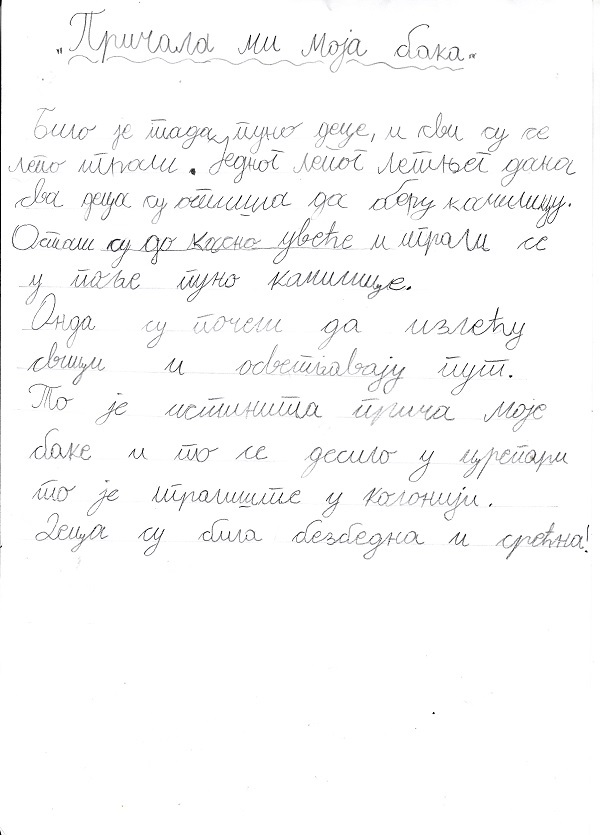 „Причала ми моја бака“
Било је тада, пуно деце, и сви су се
лепо играли. Једног лепог летњег дана
сва деца су отишла да беру камилицу.
Остали су до касно увече и играли се
у поље пуно камилице.
Онда су почели да излећу
свици и осветљавају пут.
То је истинита прича моје
баке и то се десило у црепари
то је игралиште у колонији.
Деца су била безбедна и срећна!